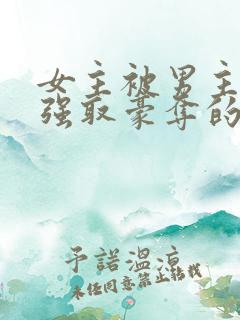 女主被男主
强取豪夺的
予諾溫涼
未经同意禁止转载